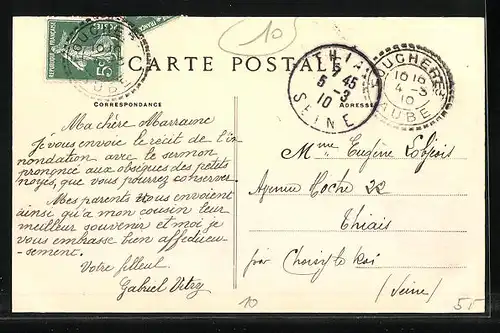 10
REPUBLIQUE FRANÇAISE
5c
OUCHERES
AUBE
CARTE POSTALE
THIAIS
7 45
5 -3
10
SEINE
OUCHERES
16 15
4 -3
10
AUBE
CORRESPONDANCE
ADRESSE
Ma chère Marraine
Je vous envoie le récit de l'i-
nondation avec le sermon
prononcé aux obsèques des petits
noyés, que vous pourrez conserver.
Mes parents vous envoient
ainsi qu'à mon cousin leur
meilleur souvenir et moi je
vous embrasse bien affectueu-
sement.
Votre filleul
Gabriel Vitry
Mme Eugène
Avenue Hoche 22
Thiais
par Choisy le Roi
(Seine)
10
55